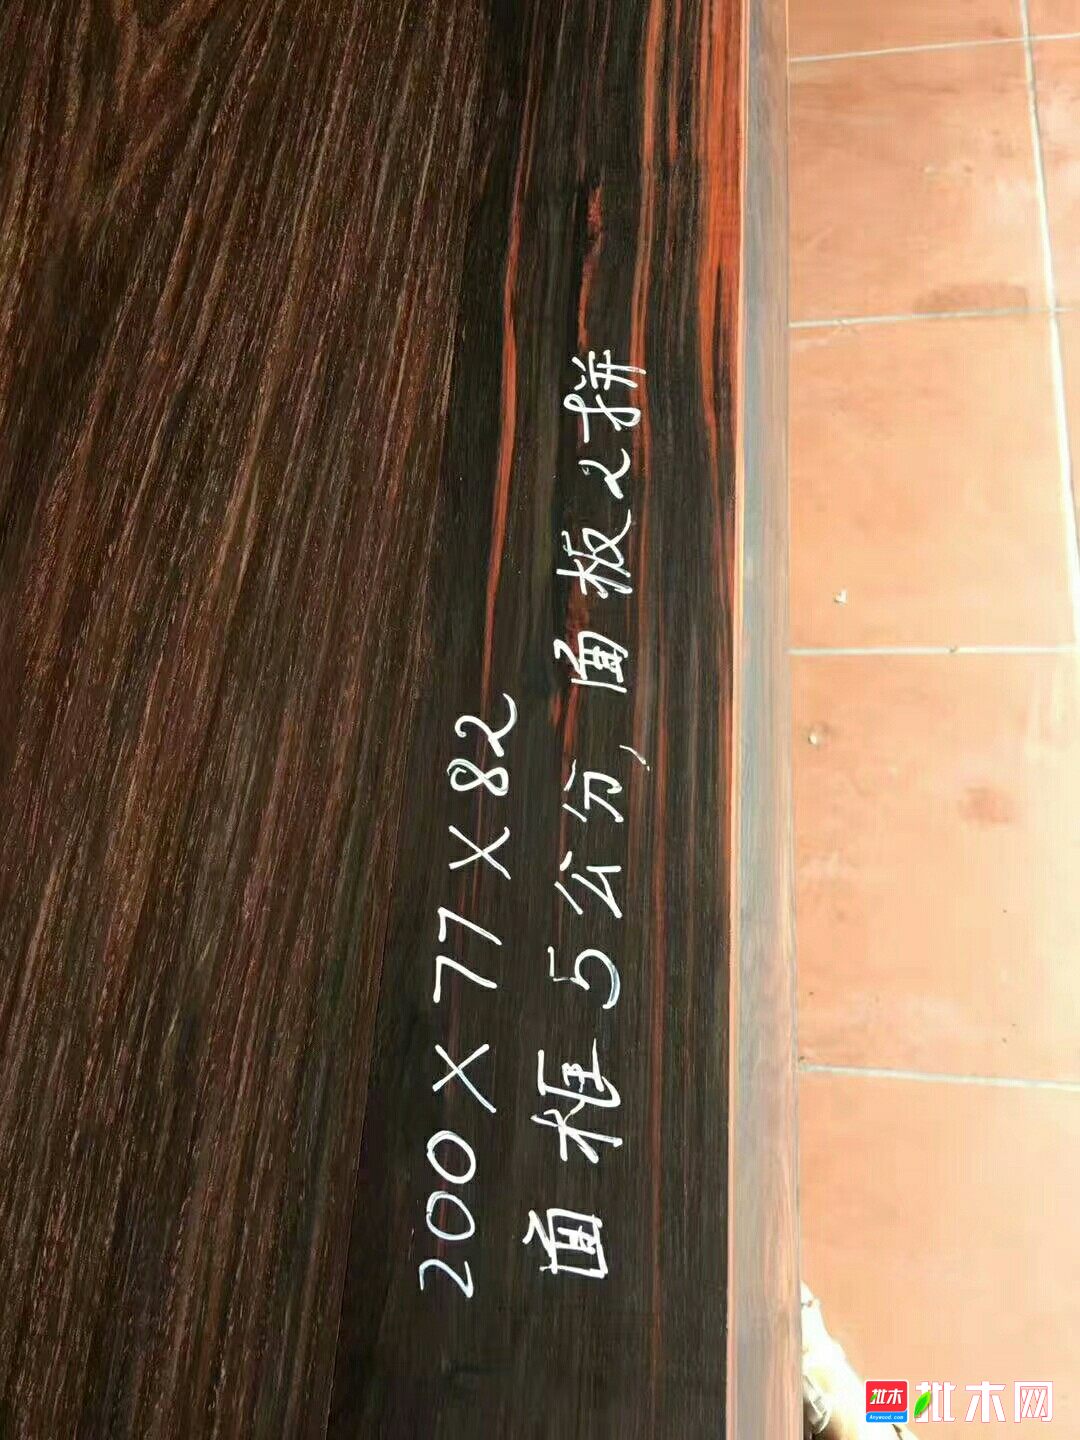 200×77×82
面框5公分,面板2拼
批木
Anywood.com
批木网